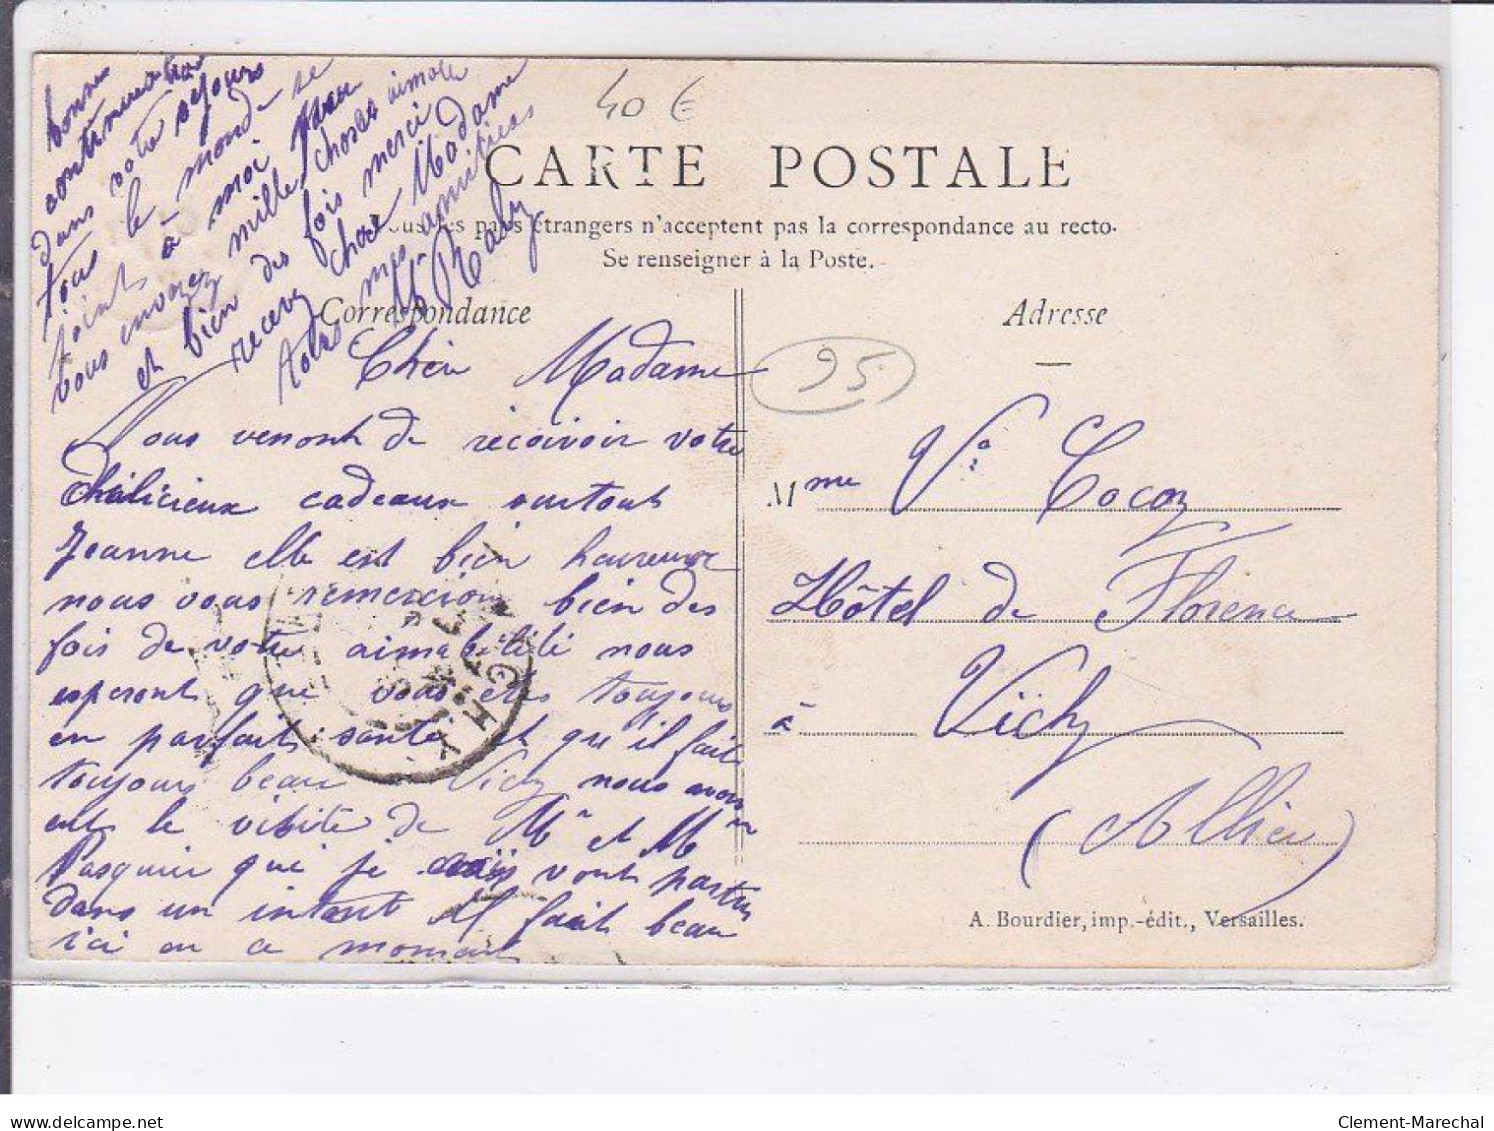 40 €
CARTE POSTALE
Tous les pays étrangers n'acceptent pas la correspondance au recto.
Se renseigner à la Poste.
Correspondance
Adresse
95
Chère Madame
Nous venont de recevoir votre
délicieux cadeaux surtout
Jeanne elle est bien heureuse
nous vous remercions bien des
fois de votre aimabilité nous
esperont que vous etes toujours
en parfaite santé et qu'il fait
toujours beau à Vichy nous avons
eut le visite de Mr et Mme
Pasquier qui je vont partir
dans un intant il fait beau
ici en ce moment
bonne
continuation
dans votre séjours
tous le monde se
joints à moi pour
vous envoyez mille choses aimable
et bien des fois merci
recevez chère Madame
toutes mes amitiées
Mr Raby
Mme Ve Cocoz
Hôtel de Florence
à Vichy
(Allier)
VICHY
A. Bourdier, imp.-édit., Versailles.
delcampe.net
Clement-Marechal